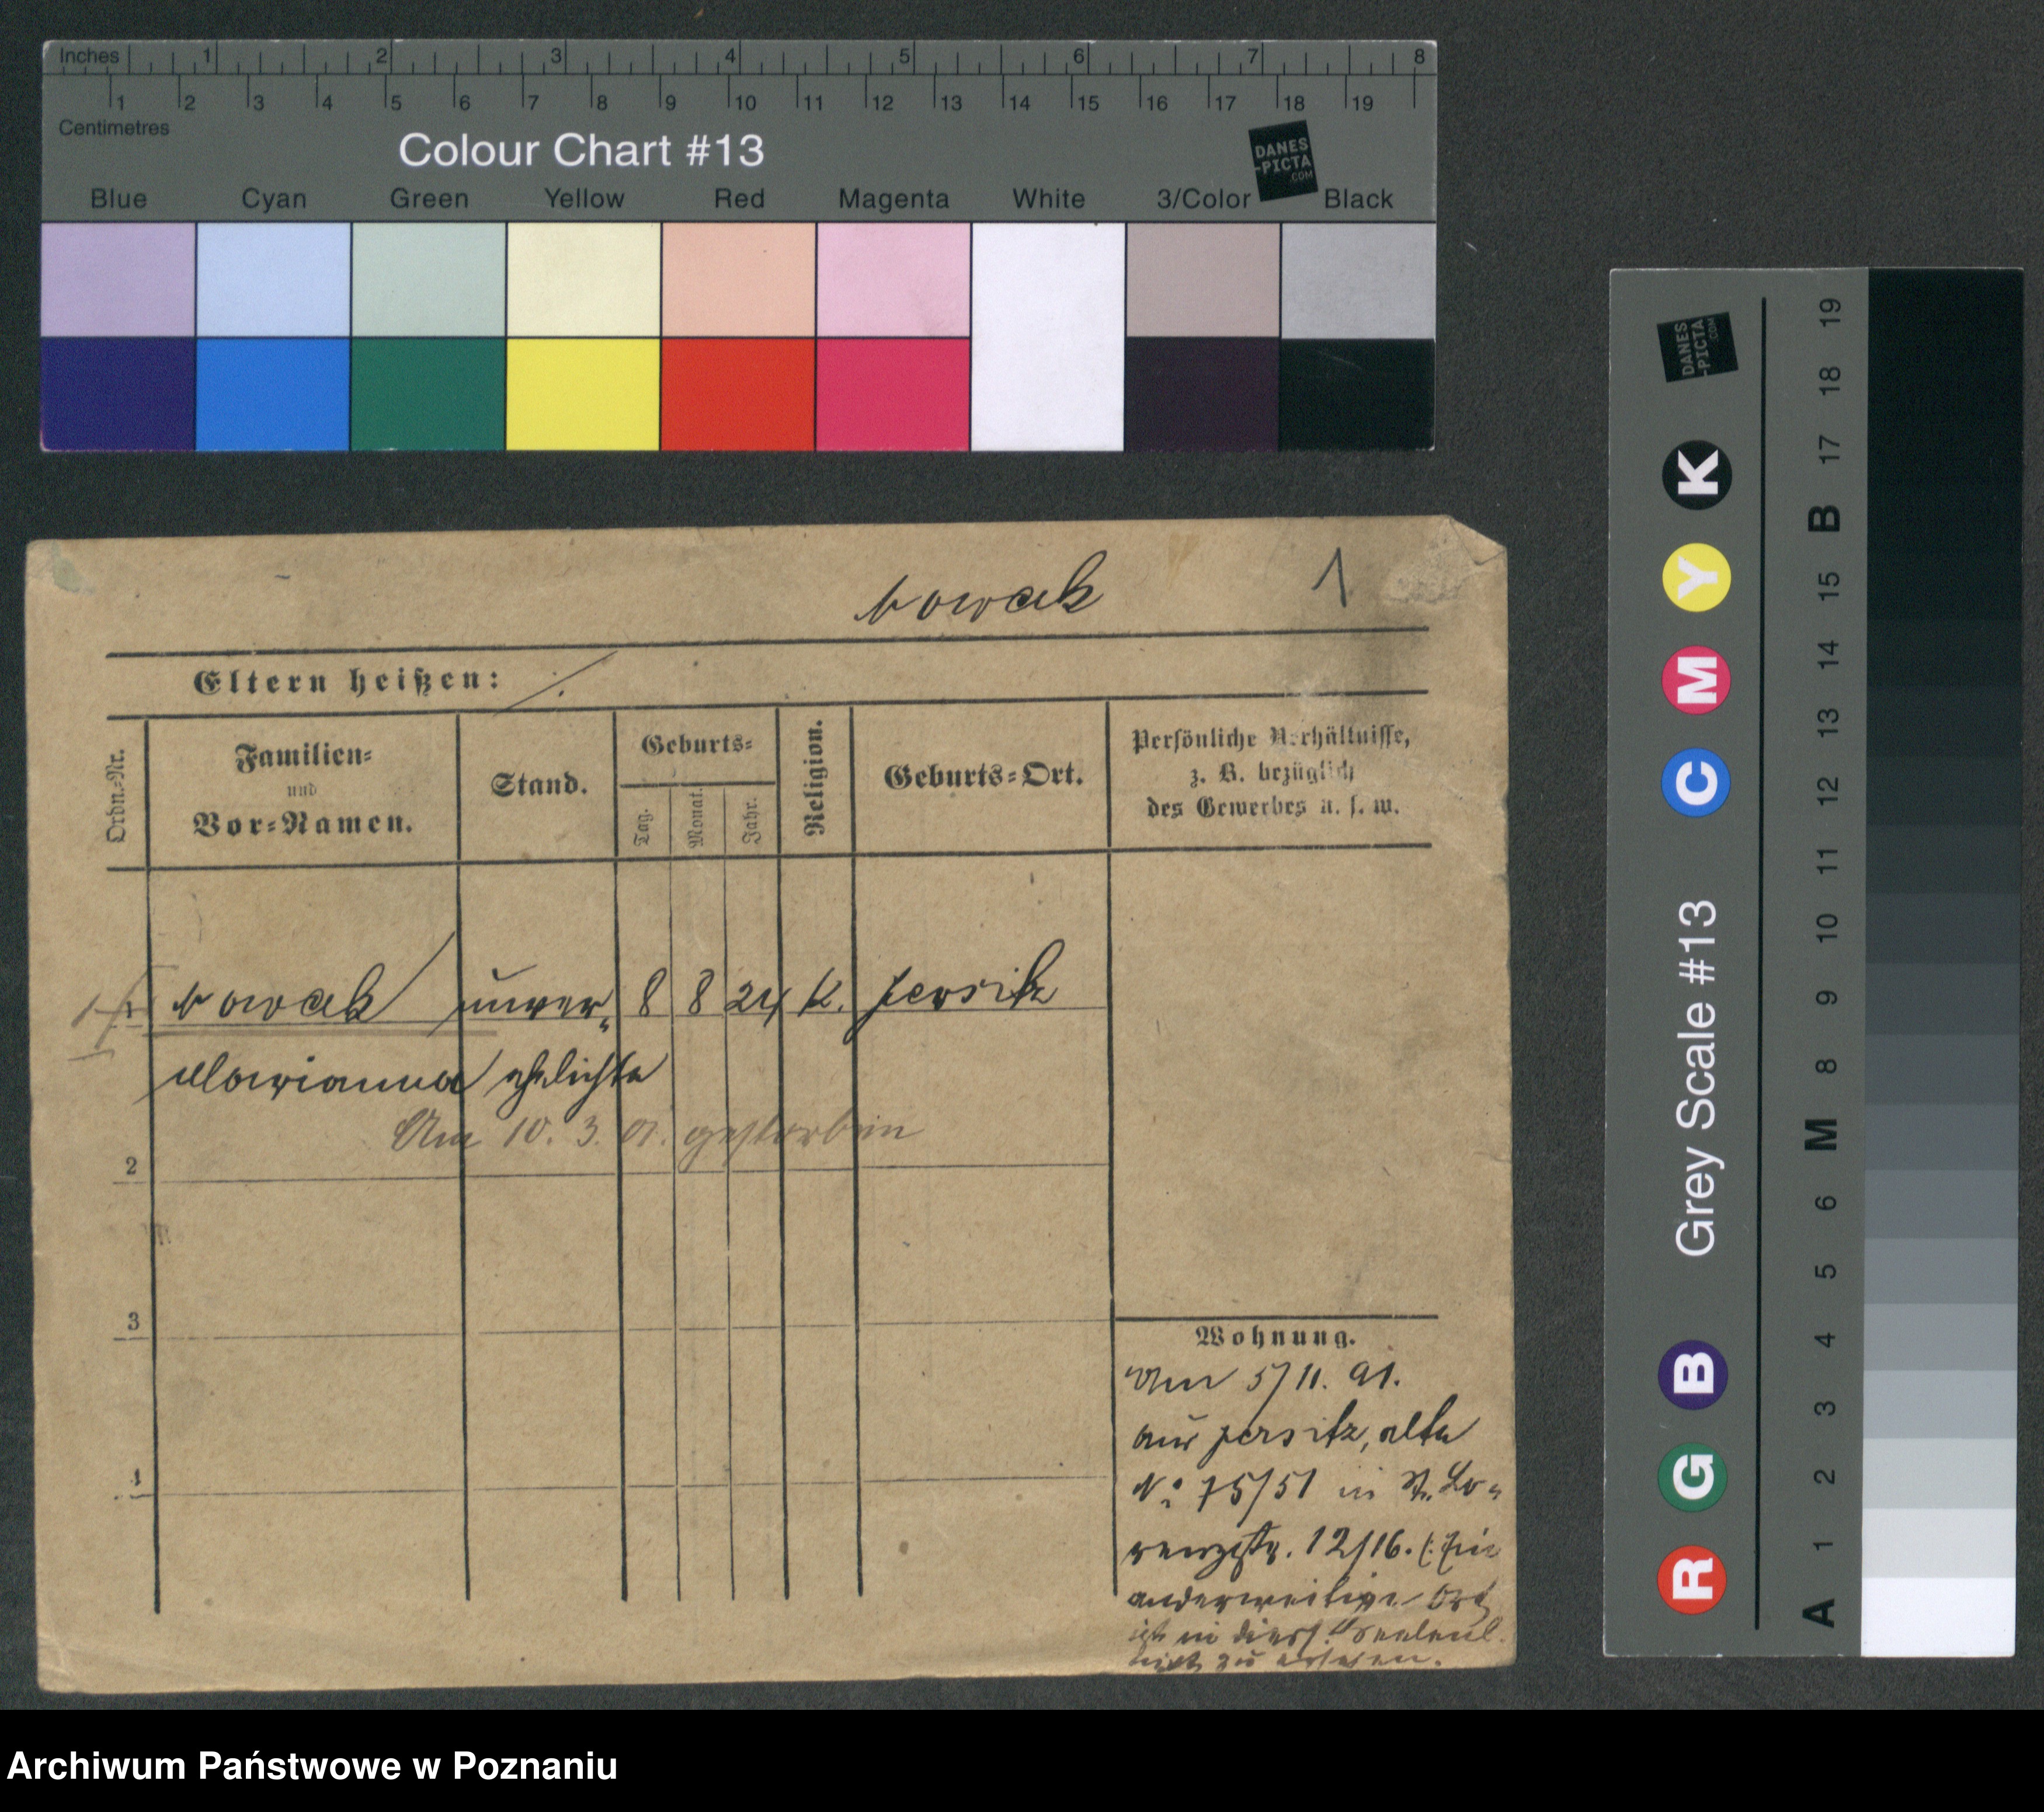 Inches 1 2 3 4 5 6 7 8
1 2 3 4 5 6 7 8 9 10 11 12 13 14 15 16 17 18 19
Centimetres
Colour Chart #13
DANES
-PICTA
.COM
Blue Cyan Green Yellow Red Magenta White 3/Color Black
Nowak 1
Eltern heißen:
Ordn.-Nr.
Familien-
und
Vor-Namen.
Stand.
Geburts-
Tag. Monat. Jahr.
Religion.
Geburts-Ort.
Persönliche Verhältnisse,
z. B. bezüglich
des Gewerbes u. s. w.
1 Nowak unver- 8 8 24 K. Jersitz
Marianna ehelichte
Am 10. 3. 01. gestorben
2
3
4
Wohnung.
Am 5/11. 91.
aus Jersitz, alte
No 75/51 in St. Lo-
renzstr. 12/16. (:Ein
anderweitiger Ort
ist in dies.
nicht zu ersehen.
DANES
-PICTA
.COM
R G B Grey Scale #13 C M Y K
A 1 2 3 4 5 6 M 8 9 10 11 12 13 14 15 B 17 18 19
Archiwum Państwowe w Poznaniu